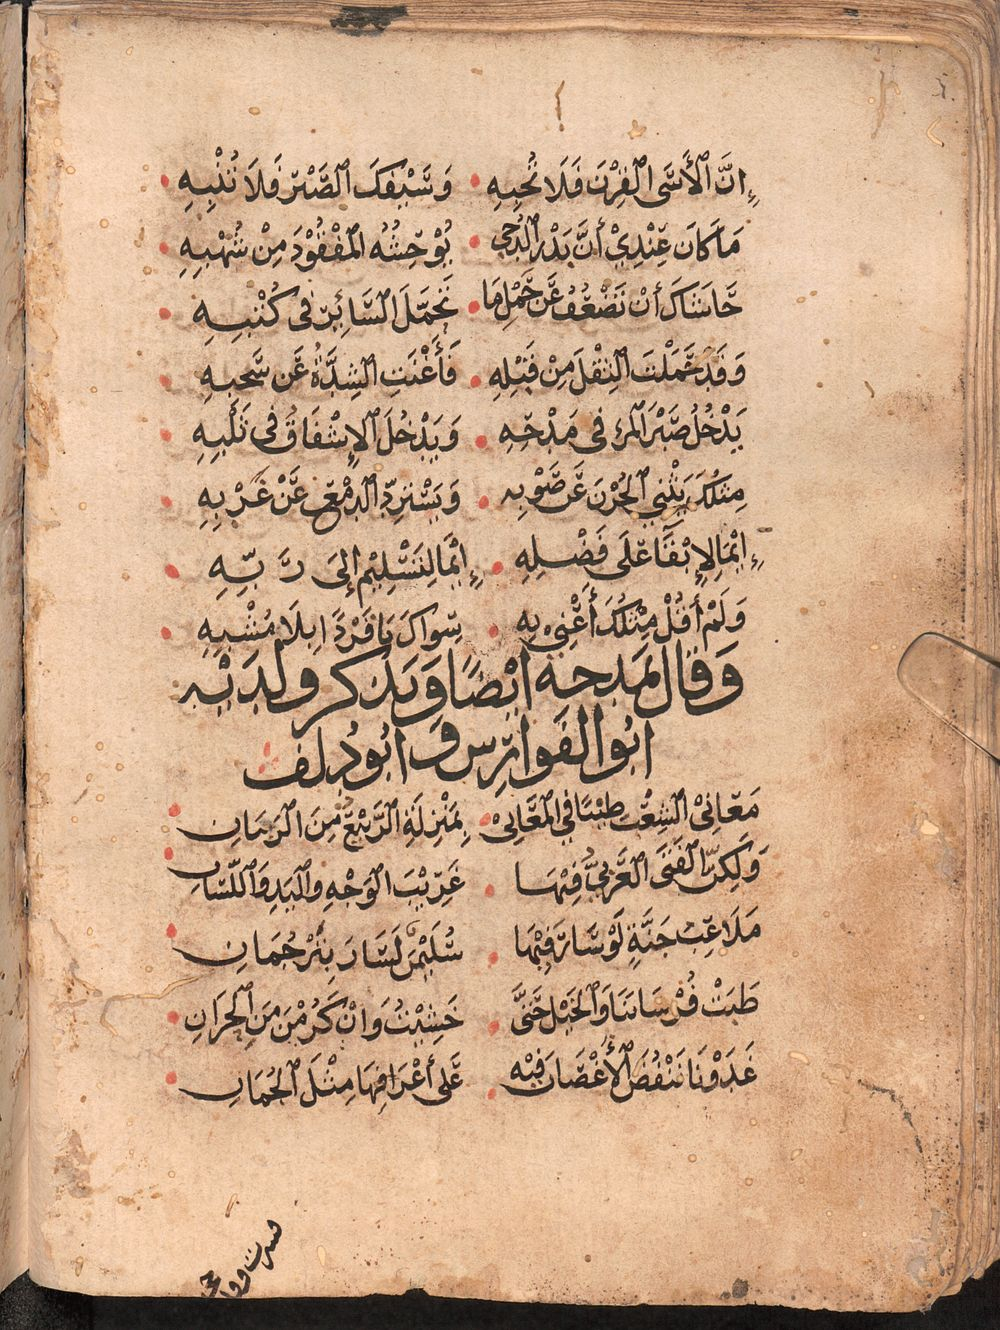 إِنَّ الْأَسَى الْقِرْنُ فَلَا تُحْيِهِ • وَسَيْفُكَ الصَّبْرُ فَلَا تُنْبِهِ •
مَا كَانَ عِنْدِيْ أَنَّ بَدْرَ الدُّجَى • يُوْحِشُهُ الْمَفْقُودُ مِنْ شُهْبِهِ •
حَاشَاكَ أَنْ تَضْعُفَ عَنْ حَمْلِ مَا • تَحَمَّلَ السَّائِرُ فِى كُتْبِهِ •
وَقَدْ حَمَلْتَ الثِّقْلَ مِنْ قَبْلِهِ • فَأَغْنَتِ الشِّدَّةُ عَنْ سَحْبِهِ •
يَدْخُلُ صَبْرُ الْمَرْءِ فِى مَدْحِهِ • وَيَدْخُلُ الْإِشْفَاقُ فِى ثَلْبِهِ •
مِثْلُكَ يَثْنِي الْحُزْنَ عَنْ صَوْبِهِ • وَيَسْتَرِدُّ الدَّمْعَ عَنْ غَرْبِهِ •
إِيْمَا لِإِبْقَاءٍ عَلَى فَضْلِهِ • إِيْمَا لِتَسْلِيْمٍ إِلَى رَبِّهِ •
وَلَمْ أَقُلْ مِثْلُكَ أَعْنِيْ بِهِ • سِوَاكَ يَا فَرْدًا بِلَا مُشْبِهِ •
وَقَالَ يَمْدَحُهُ أَيْضًا وَيَذْكُرُ وَلَدَيْهِ
ابُو الْفَوَارِسِ وَابُو دُلَف
مَغَانِىْ الشِّعْبِ طِيْبًا فِي الْمَغَانِىْ • بِمَنْزِلَةِ الرَّبِيْعِ مِنَ الزَّمَانِ •
وَلٰكِنَّ الْفَتَى الْعَرَبِيَّ فِيْهَا • غَرِيْبُ الْوَجْهِ وَالْيَدِ وَاللِّسَانِ •
مَلَاعِبُ جِنَّةٍ لَوْ سَارَ فِيْهَا • سُلَيْمٰنُ لَسَارَ بِتَرْجُمَانِ •
طَبَتْ فُرْسَانَنَا وَالْخَيْلَ حَتَّى • خَشِيْتُ وَإِنْ كَرُمْنَ مِنَ الْحِرَانِ •
غَدَوْنَا تَنْفُضُ الْأَغْصَانُ فِيْهِ • عَلَى أَعْرَافِهَا مِثْلَ الْجُمَانِ •